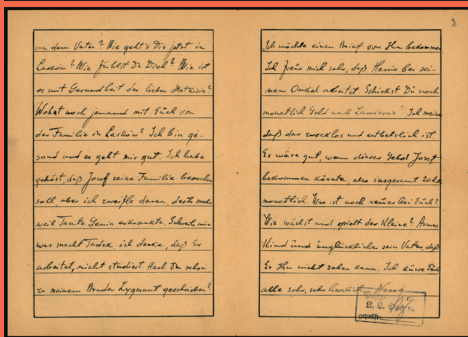 von dem Vater? Wie geht's Dir jetzt in
Laskow? Wie fühlst Du Dich? Wie ist
es mit Gesundheit der lieben
Wohnt noch jemand mit Euch von
der Familie in Laskow? Ich bin ge-
sund und es geht mir gut. Ich habe
gehört, daß Josef seine Familie besuchen
soll aber ich zweifle daran desto mehr
weil Tante Genia erkrankte. Schreib mir
was macht Tadek, ich denke, daß Er
arbeitet, nicht studiert. Hast Du schon
zu meinem Bruder Zygmunt geschrieben?
3
Ich möchte einen Brief von Ihm bekommen
Ich freue mich sehr, daß Henio bei sei-
nem Onkel arbeitet. Schickst Du noch
monatlich Geld nach Ich meine
daß das zwecklos und entbehrlich ist
Es wäre gut, wenn dieses Geld Josef
bekommen könnte, also insgesamt
monatlich. Was ist noch neues bei Euch?
Wie wächst und spielt der Kleine? Armes
Kind und unglücklicher sein Vater, daß
Er Ihn nicht sehen kann. Ich küsse Euch
alle sehr, sehr herzlich